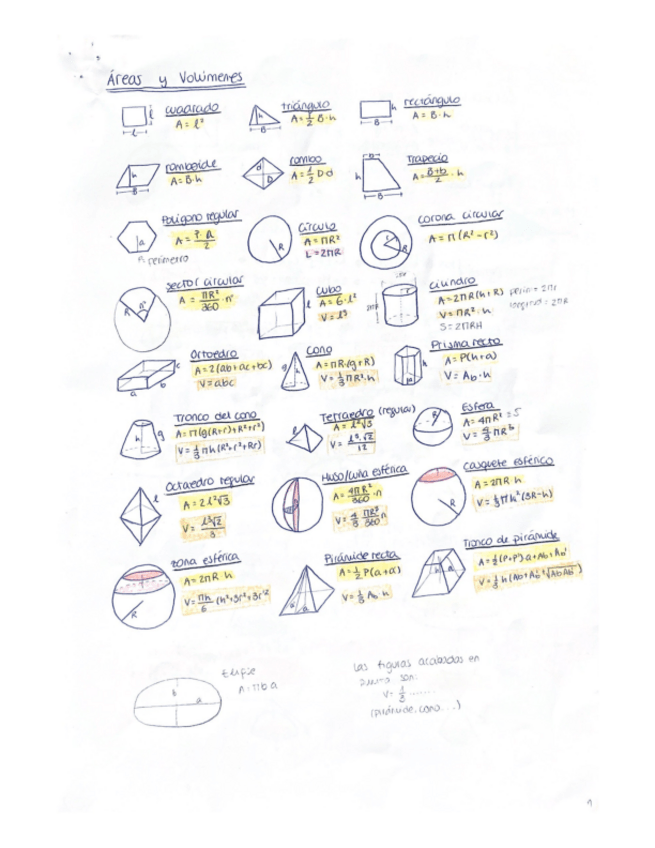 Áreas y Volúmenes
cuadrado
A = l²
l
l
triángulo
A = 1/2 B·h
h
B
rectángulo
A = B·h
h
B
romboide
A = B·h
h
B
rombo
A = 1/2 D·d
d
D
Trapecio
A = B+b/2 · h
b
h
B
Polígono regular
A = P·a/2
a
P. perímetro
círculo
A = πR²
L = 2πR
R
corona circular
A = π(R²-r²)
r
R
sector circular
A = πR²/360 · n°
R
n°
cubo
A = 6·l²
V = l³
l
cilindro
A = 2πR(h+R)
V = πR²·h
S = 2πRH
longitud = 2πR
Ortoedro
A = 2(ab+ac+bc)
V = abc
a
b
c
cono
A = πR·(g+R)
V = 1/3 πR²·h
g
h
Prisma recto
A = P(h+a)
V = Ab·h
h
Tronco del cono
A = π(g(R+r)+R²+r²)
V = 1/3 πh(R²+r²+Rr)
h
g
Tetraedro (regular)
A = l²√3
V = l³·√2/12
l
Esfera
A = 4πR² = S
V = 4/3 πR³
R
Octaedro regular
A = 2l²√3
V = l³√2/3
l
Huso/cuña esférica
A = 4πR²/360 · n
casquete esférico
A = 2πR·h
V = 1/3 πh²(3R-h)
R
zona esférica
A = 2πR·h
V = πh/6 (h²+3r²+3r'²
R
Pirámide recta
A = 1/2 P(a+a')
V = 1/3 Ab·h
Tronco de pirámide
A = 1/2 (P+P')·a+Ab+Ab'
V = 1/3 h(Ab+Ab'+√AbAb')
Elipse
A = πb a
b
a
Las figuras acabadas en
punta son:
V = 1/3 .......
(pirámide, cono...)
1